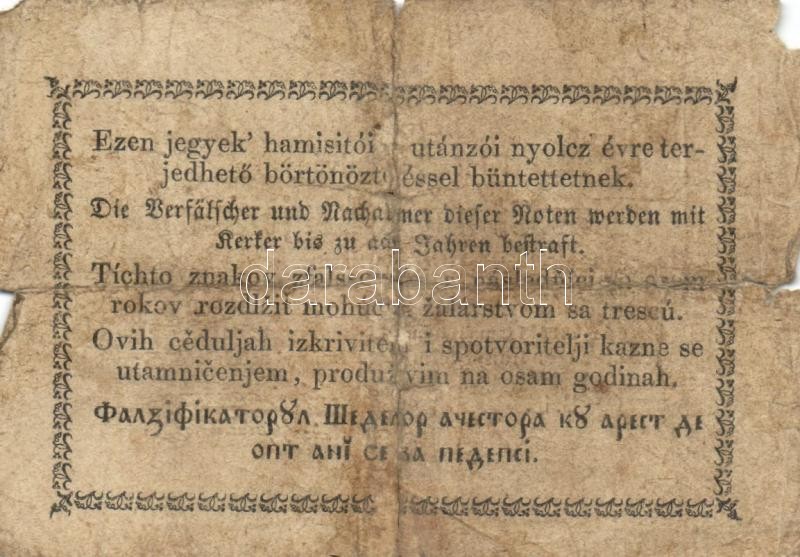 Ezen jegyek' hamisitói utánzói nyolcz évre ter-
jedhető börtönöztetéssel büntettetnek.
Die Verfälscher und Nachahmer dieser Noten werden mit
Kerker bis zu acht Jahren bestraft.
Tíchto znakov
rokov rozdížiť mohúc žalárstvom sa trescú.
Ovih cěduljah izkrivitelji i spotvoritelji kazne se
utamničenjem, produživim na osam godinah.
Фалзіфікаторꙋл Шеделор ачестора кꙋ арест де
опт анї се ва педепсі.
darabanth